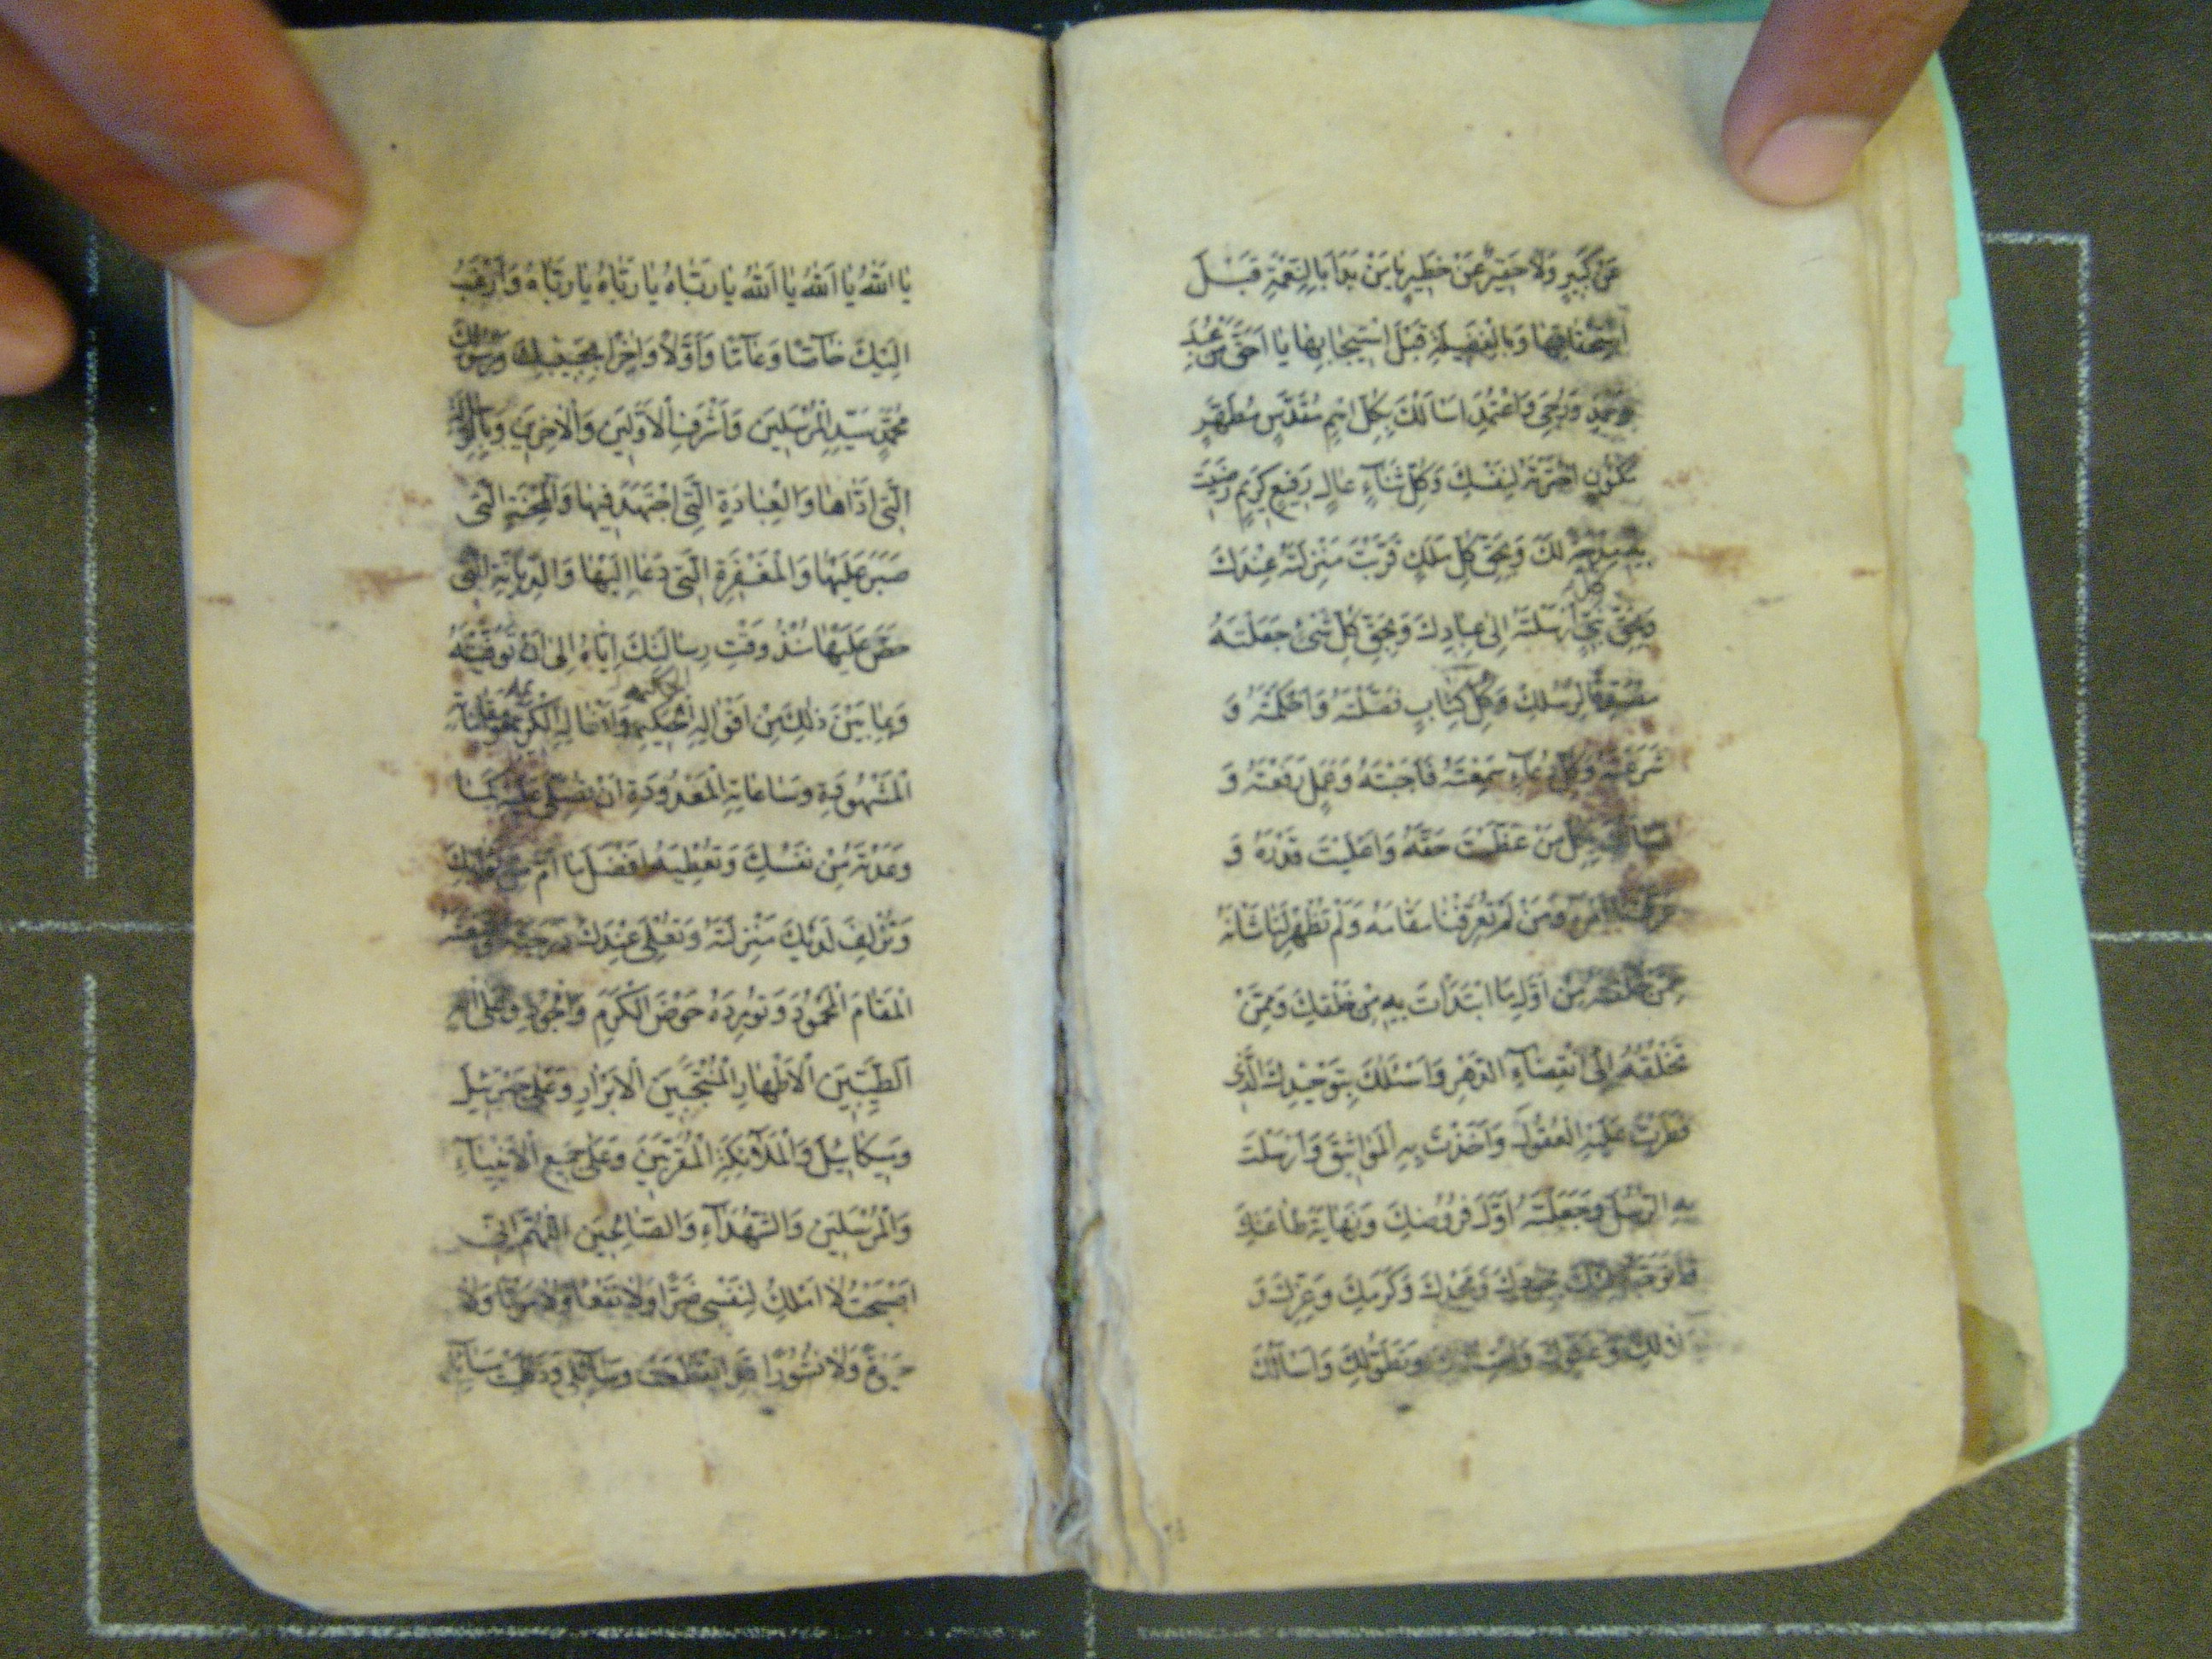 عَنْ كَبِيرٍ وَلَا حَقِيرٌ عَنْ خَطِيرٍ يَا مَنْ بَدَأَ بِالنِّعْمَةِ قَبْلَ
اسْتِحْقَاقِهَا وَبِالْفَضِيلَةِ قَبْلَ اسْتِيجَابِهَا يَا أَحَقَّ مَنْ عُبِدَ
وَحُمِدَ وَرُجِيَ وَاعْتُمِدَ اَسْاَلُكَ بِكُلِّ اسْمٍ مُقَدَّسٍ مُطَهَّرٍ
مَكْنُونٍ اخْتَرْتَهُ لِنَفْسِكَ وَكُلِّ ثَنَآءٍ عَالٍ رَفِيعٍ كَرِيمٍ رَضِيتَ
لَكَ وَبِحَقِّ كُلِّ مَلَكٍ قَرَّبْتَ مَنْزِلَتَهُ عِنْدَكَ
وَبِحَقِّ كل نَبِيٍّ أَرْسَلْتَهُ اِلَى عِبَادِكَ وَبِحَقِّ كُلِّ شَىْءٍ جَعَلْتَهُ
لِرُسُلِكَ وَكُلِّ كِتَابٍ فَصَّلْتَهُ وَاَحْكَمْتَهُ وَ
شَرَعْتَهُ وَكُلِّ دُعَآءٍ سَمِعْتَهُ فَاَجَبْتَهُ وَعَمَلٍ رَفَعْتَهُ وَ
مَنْ عَظَّمْتَ حَقَّهُ وَاَعْلَيْتَ قَدْرَهُ وَ
وَمَنْ لَمْ تُعَرِّفْنَا مَقَامَهُ وَلَمْ تُظْهِرْ لَنَا شَأْنَهُ
مِمَّنْ خَلَقْتَهُ مِنْ اَوَّلِ مَا ابْتَدَأْتَ بِهِ مِنْ خَلْقِكَ وَمِمَّنْ
تَخْلُقُهُ اِلَى انْقِضَآءِ الدَّهْرِ وَاَسْئَلُكَ بِتَوْحِيدِكَ الَّذِى
فَطَرْتَ عَلَيْهِ الْعُقُولَ وَاَخَذْتَ بِهِ الْمَوَاثِيقَ وَاَرْسَلْتَ
بِهِ الرُّسُلَ وَجَعَلْتَهُ اَوَّلَ فُرُوضِكَ وَنِهَايَةَ طَاعَتِكَ
وَمَجْدِكَ وَكَرَمِكَ وَعِزِّكَ وَ
وَعَفْوِكَ وَتَطَوُّلِكَ وَاَسْاَلُكَ
يَا اَللّٰهُ يَا اَللّٰهُ يَا اَللّٰهُ يَا رَبَّاهُ يَا رَبَّاهُ يَا رَبَّاهُ وَاَرْغَبُ
اِلَيْكَ خَاصًّا وَعَامًّا وَاَوَّلًا وَاٰخِرًا وَرَسُولِكَ
مُحَمَّدٍ سَيِّدِ الْمُرْسَلِينَ وَاَشْرَفِ الْاَوَّلِينَ وَالْاٰخِرِينَ وَبِالرِّسَالَةِ
الَّتِى اَدَّاهَا وَالْعِبَادَةِ الَّتِى اجْتَهَدَ فِيهَا وَالْمِحْنَةِ الَّتِى
صَبَرَ عَلَيْهَا وَالْمَغْفِرَةِ الَّتِى دَعَا اِلَيْهَا وَالدِّيَانَةِ الَّتِى
حَضَّ عَلَيْهَا مُنْذُ وَقْتِ رِسَالَتِكَ اِيَّاهُ اِلَى اَنْ تَوَفَّيْتَهُ
وَبِمَا بَيْنَ ذٰلِكَ مِنْ اَقْوَالِهِ الْحَكِيمَةِ وَاَفْعَالِهِ الْكَرِيمَةِ وَمَقَامَاتِهِ
الْمَشْهُودَةِ وَسَاعَاتِهِ الْمَعْدُودَةِ اَنْ تُصَلِّىَ عَلَيْهِ كَمَا
وَعَدْتَهُ مِنْ نَفْسِكَ وَتُعْطِيَهُ اَفْضَلَ مَا اَمَّلَ مِنْ ثَوَابِكَ
وَتُزْلِفَ لَدَيْكَ مَنْزِلَتَهُ وَتُعْلِىَ عِنْدَكَ دَرَجَتَهُ وَتَبْعَثَهُ
الْمَقَامَ الْمَحْمُودَ وَتُورِدَهُ حَوْضَ الْكَرَمِ وَالْجُودِ وَعَلَى اٰلِهِ
الطَّيِّبِينَ الْاَطْهَارِ الْمُنْتَجَبِينَ الْاَبْرَارِ وَعَلَى جَبْرَئِيلَ
وَمِيكَائِيلَ وَالْمَلَآئِكَةِ الْمُقَرَّبِينَ وَعَلَى جَمِيعِ الْاَنْبِيَآءِ
وَالْمُرْسَلِينَ وَالشُّهَدَآءِ وَالصَّالِحِينَ اَللّٰهُمَّ اِنِّى
اَصْبَحْتُ لَا اَمْلِكُ لِنَفْسِى ضَرًّا وَلَا نَفْعًا وَلَا مَوْتًا وَلَا
وَلَا نُشُورًا قَدِ انْقَطَعَتْ وَسَآئِلِى وَذَهَبَتْ مَسَآئِلِى